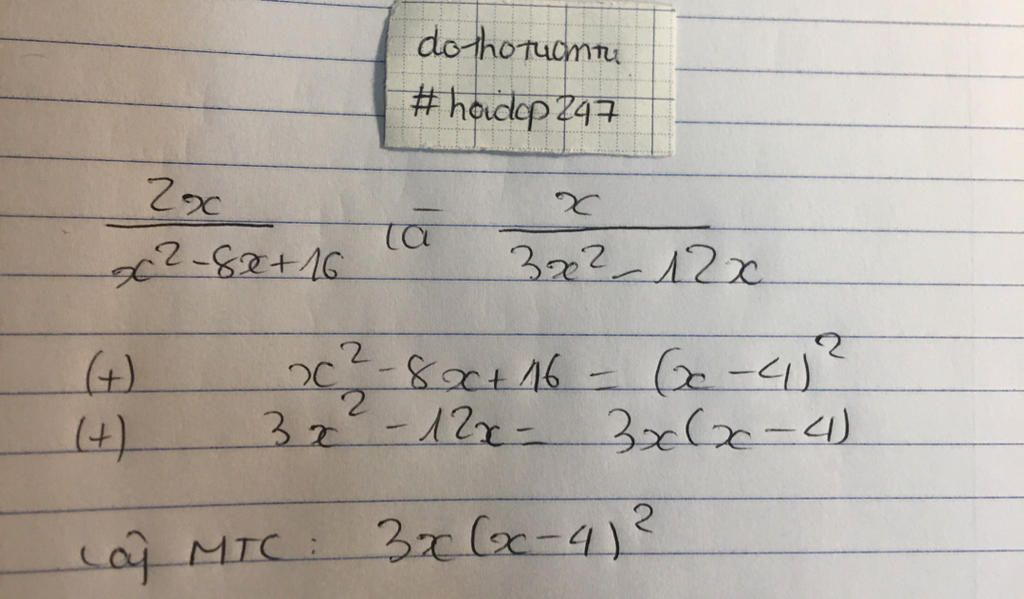 dothotucmtu
#hoidap247
2x / x² - 8x + 16 và x / 3x² - 12x
(+) x² - 8x + 16 = (x - 4)²
(+) 3x² - 12x = 3x(x - 4)
MTC : 3x(x - 4)²